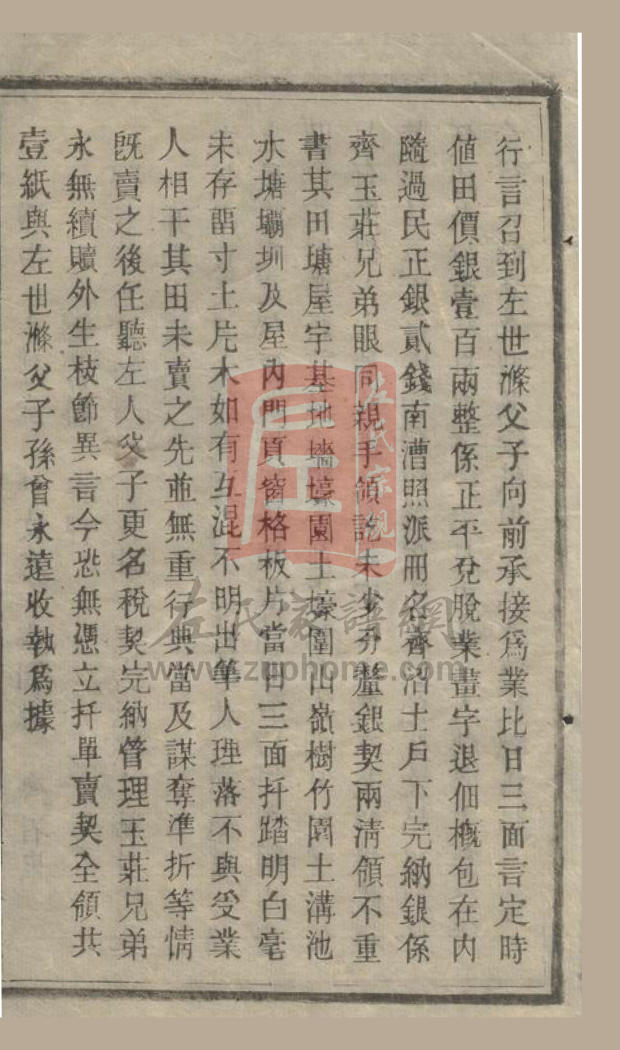 行言召到左世滌父子向前承接爲業比日三面言定時
值田價銀壹百兩整係正平兌脫業畫字退佃概包在內
隨過民正銀貳錢南漕照派冊名齊沼士戶下完納銀係
齊玉莊兄弟眼同親手領訖未少分釐銀契兩清領不重
書其田塘屋宇基地墻壕園土壕圍山嶺樹竹園土溝池
水塘壩圳及屋內門頁窗格板片當日三面扦踏明白毫
未存畱寸土片木如有互混不明出筆人理落不與受業
人相干其田未賣之先並無重行典當及謀奪準折等情
旣賣之後任聽左人父子更名稅契完納管理玉莊兄弟
永無續贖外生枝節異言今恐無憑立扦單賣契全領共
壹紙與左世滌父子孫曾永遠收執爲據
左氏宗親
左氏家譜網
www.zuphome.com